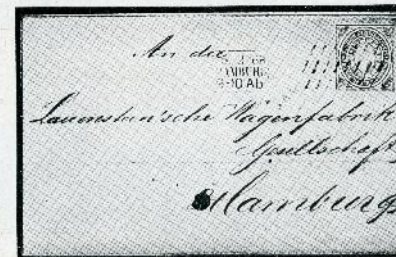 An die
HAMBURG
9-10 Ab
Lauenstein'sche Wagenfabrik
Gesellschaft
Hamburg